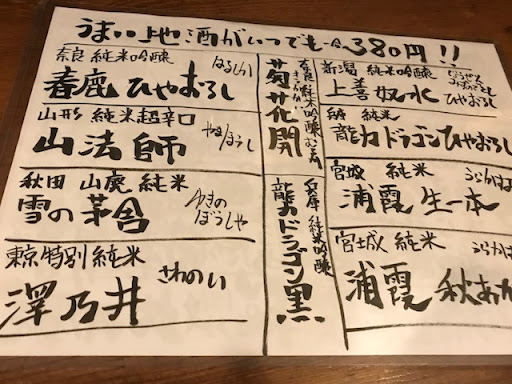 うまい地酒がいつでも一合380円!!
奈良 純米吟醸 はるしか
春鹿 ひやおろし
山形 純米超辛口
山法師 やまほうし
秋田 山廃 純米
雪の茅舎 ゆきの
ぼうしゃ
東京特別純米
澤乃井 さわのい
奈良 純米吟醸
菊花開
兵庫 純米吟醸
龍力ドラゴン黒
新潟 純米吟醸
上善如水 ひやおろし
兵庫 純米
龍力ドラゴンひやおろし
宮城 純米 うらかす
浦霞 生一本
宮城 純米 うらか
浦霞 秋あが